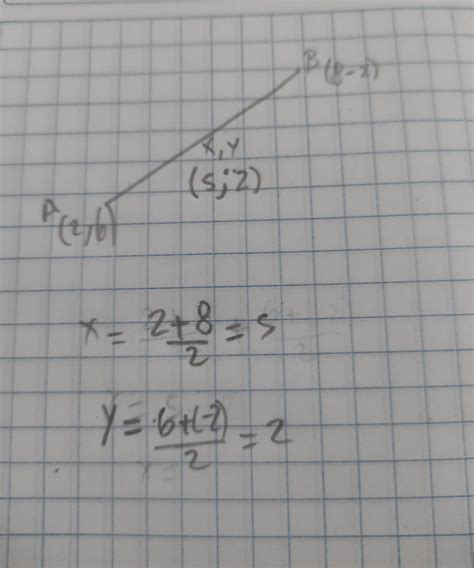 B (8-2)
x, y
(5;2)
A (2,6)
x = 2+8/2 = 5
y = 6+(-2)/2 = 2